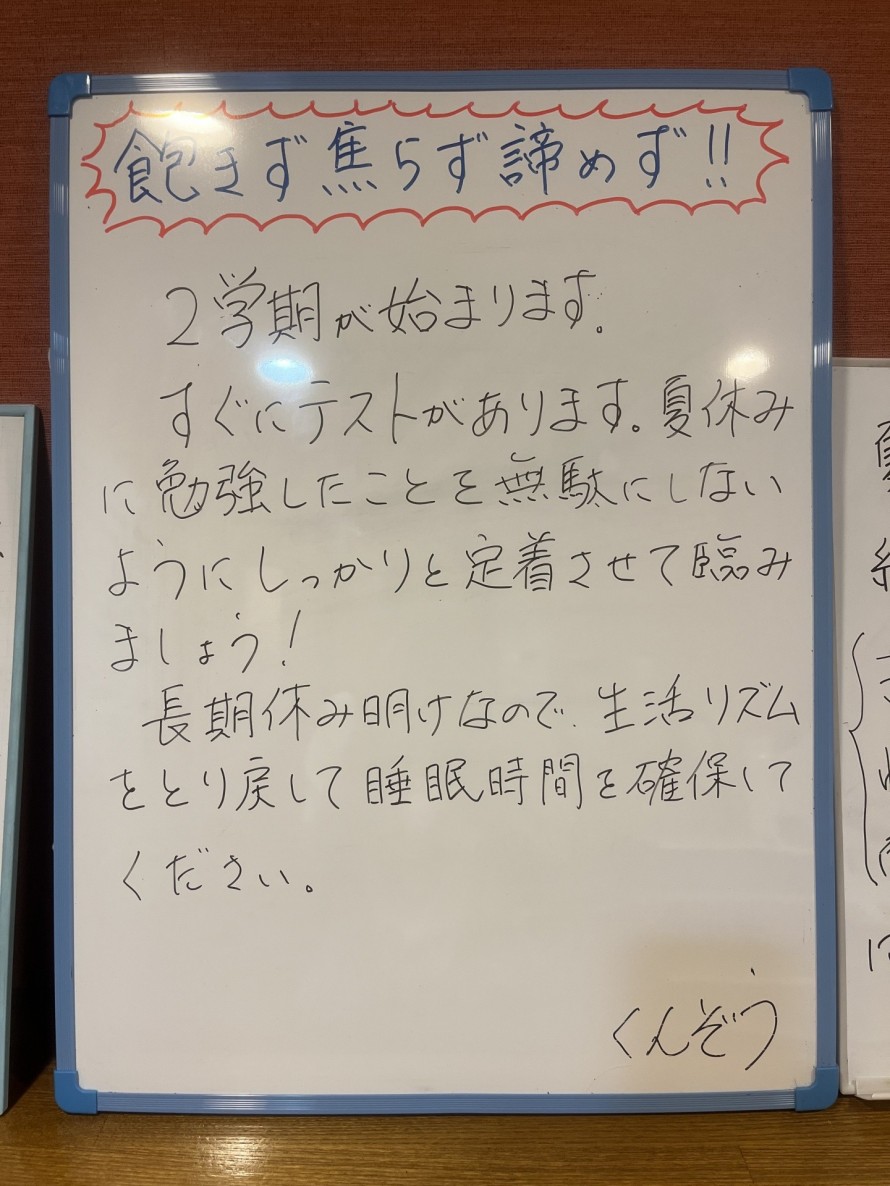 飽きず焦らず諦めず!!
2学期が始まります。
すぐにテストがあります。夏休み
に勉強したことを無駄にしない
ようにしっかりと定着させて臨み
ましょう!
長期休み明けなので、生活リズム
をとり戻して睡眠時間を確保して
ください。
くんぞう